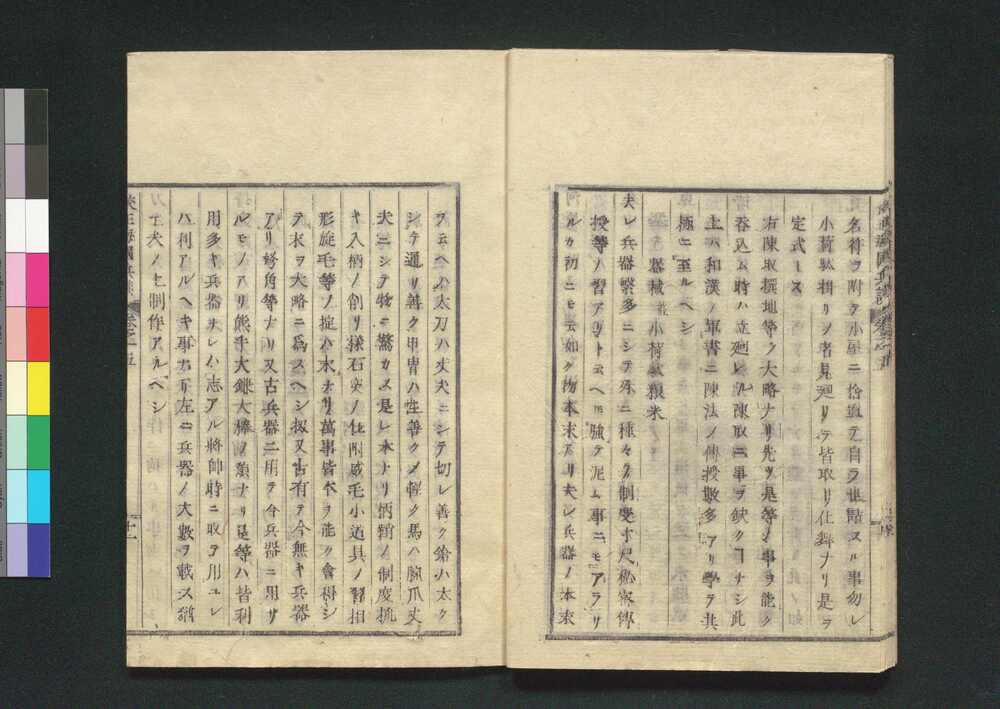 名符ヲ附テ小屋ニ捨置テ自ラ世話スル事勿レ
小荷駄押リノ者見廻リテ皆取リ仕舞ナリ是ヲ
定式トス
右陳取撰地等ノ大略ナリ先ツ是等ノ事ヲ能ク
呑込ム時ハ立廻レル陳取ニ事ヲ缺クコナシ此
上ハ和漢ノ軍書ニ陳法ノ傳授數多アリ學テ其
極ニ至ルヘシ
器械 小荷駄粮米
夫レ兵器繁多ニシテ殊ニ種々ノ制度寸尺秘密傳
授等ノ習アリトエヘヨ強テ泥ム事ニモアラサ
ルカ初ニモ云如ク物本末アリ夫レ兵器ノ本末
ヲ云ヘハ太刀ハ丈夫ニシテ切レ善ク鎗ハ太ク
シテ通リ善ク甲冑ハ性善クシ輕ク馬ハ腕爪丈
夫ニシテ物ニ驚カヌ是レ本ナリ柄鞘ノ制度梳
キ入柄ノ削リ様石突ノ仕附威毛小道具ノ習相
形旋毛等ノ掟ハ末ナリ萬事皆本ヲ能ク會得シ
テ末ヲ大略ニ爲スヘシ扨又古有テ今無キ兵器
アリ弩角等ナリ又古兵器ニ用テ今兵器ニ用サ
ルモノアリ熊手大鎌大棒ノ類ナリ是等ハ皆利
用多キ兵器ナレハ志アル將帥時ニ取テ用ユレ
ハ利アルヘキ事ナリ左ニ兵器ノ大數ヲ載ス猶
工夫ノ上制作アルヘシ
海國兵談 卷之五 十一